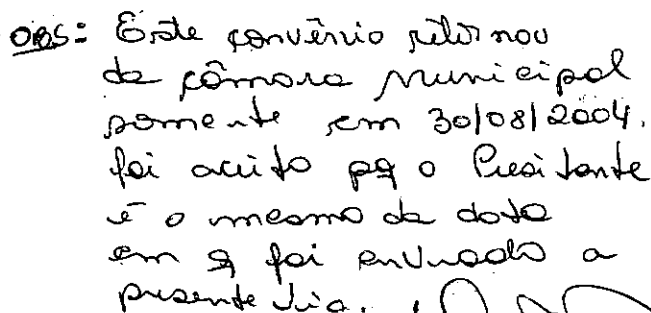 OBS: Este convênio retornou
da Câmara Municipal
somente em 30/08/2004.
foi aceito pq o Presidente
é o mesmo da data
em q foi enviado a
presente via.